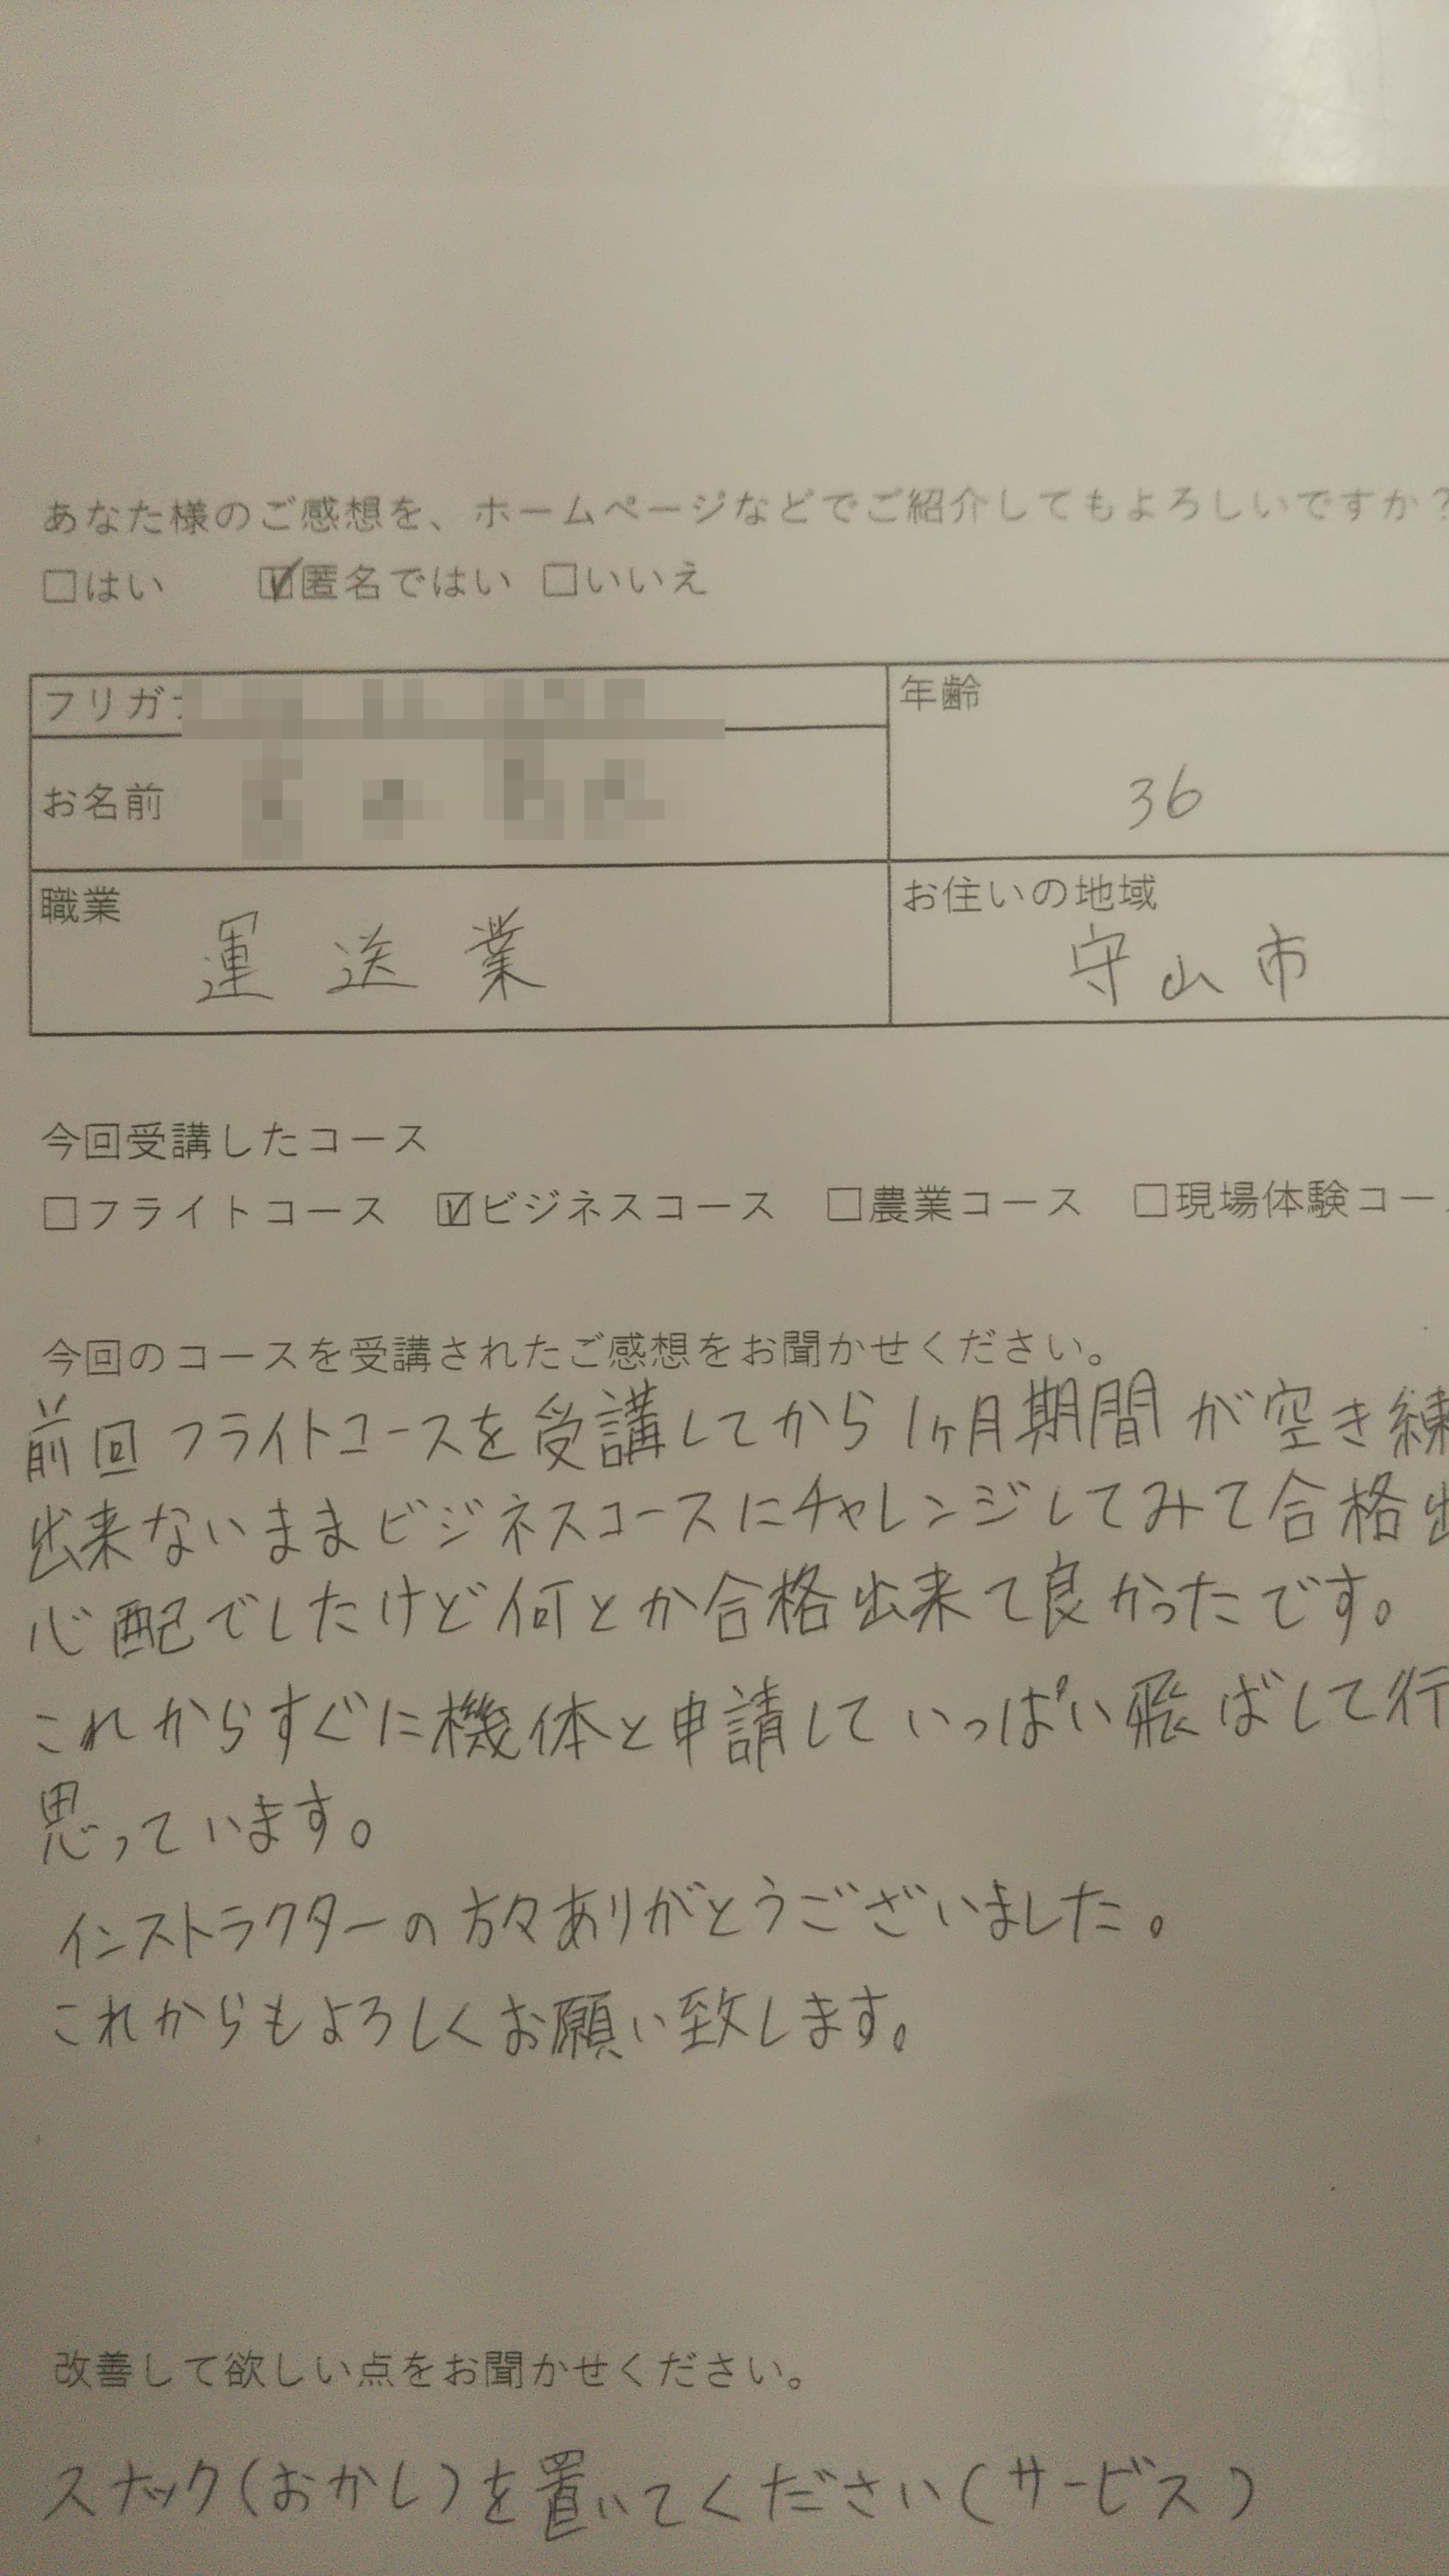 あなた様のご感想を、ホームページなどでご紹介してもよろしいですか？
□はい ☑匿名ではい □いいえ
フリガ
年齢
お名前
36
職業
お住いの地域
運送業
守山市
今回受講したコース
□フライトコース ☑ビジネスコース □農業コース □現場体験コー
今回のコースを受講されたご感想をお聞かせください。
前回フライトコースを受講してから1ヶ月期間が空き練
出来ないままビジネスコースにチャレンジしてみて合格出
心配でしたけど何とか合格出来て良かったです。
これからすぐに機体と申請していっぱい飛ばして行
思っています。
インストラクターの方々ありがとうございました。
これからもよろしくお願い致します。
改善して欲しい点をお聞かせください。
スナック(おかし)を置いてください(サービス)